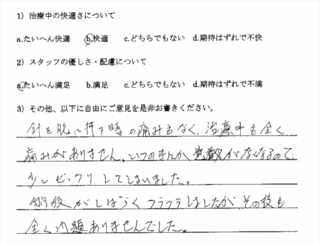 1）治療中の快適さについて
a.たいへん快適 b.快適 c.どちらでもない d.期待はずれで不快
2）スタッフの優しさ・配慮について
a.たいへん満足 b.満足 c.どちらでもない d.期待はずれで不満
3）その他、以下に自由にご意見を是非お書きください。
針を脱い持す時の痛みもなく、治療中も全く
痛みがありません。いつのまんか 感覚がなくなるので
少しビックリしてしまいました。
術後がしばらくフラフラしましたが その後も
全く問題ありませんでした。